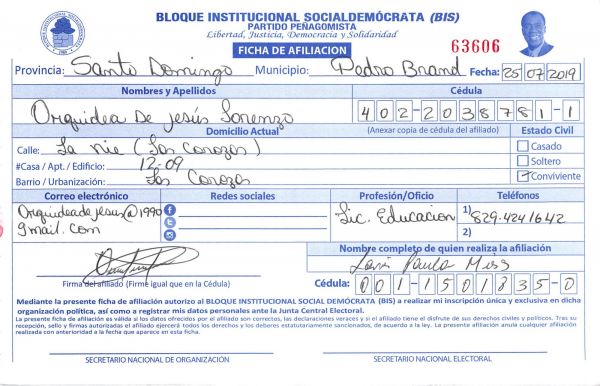 BLOQUE INSTITUCIONAL SOCIALDEMÓCRATA (BIS)
PARTIDO PEÑAGOMISTA
Libertad, Justicia, Democracia y Solidaridad
FICHA DE AFILIACION
63606
Provincia: Santo Domingo Municipio: Pedro Brand Fecha: 25 07 2019
Nombres y Apellidos Cédula
Orquidea De Jesús Lorenzo 402-2038781-1
Domicilio Actual (Anexar copia de cédula del afiliado) Estado Civil
Calle: La Nie (Los Corozos) Casado
#Casa / Apt. / Edificio: 12-09 Soltero
Barrio / Urbanización: Los Corozos Conviviente
Correo electrónico Redes sociales Profesión/Oficio Teléfonos
Orquideadejesus@1990 Lic. Educacion 1) 829.4241642
gmail.com 2)
Nombre completo de quien realiza la afiliación
Paula
Firma del afiliado (Firme igual que en la Cédula) Cédula: 001-1501835-0
Mediante la presente ficha de afiliación autorizo al BLOQUE INSTITUCIONAL SOCIAL DEMÓCRATA (BIS) a realizar mi inscripción única y exclusiva en dicha
organización política, así como a registrar mis datos personales ante la Junta Central Electoral.
La presente ficha de afiliación es válida si los datos ofrecidos por el afiliado son correctos, las declaraciones veraces y si el afiliado tiene el disfrute de sus derechos civiles y políticos. Tras su
recepción, sello y firmas autorizadas el afiliado ejercerá todos los derechos y los deberes estatutariamente sancionados, de acuerdo a la ley. La presente afiliación anula cualquier afiliación realizada
con anterioridad a la fecha que aparece en esta ficha.
SECRETARIO NACIONAL DE ORGANIZACIÓN SECRETARIO NACIONAL ELECTORAL